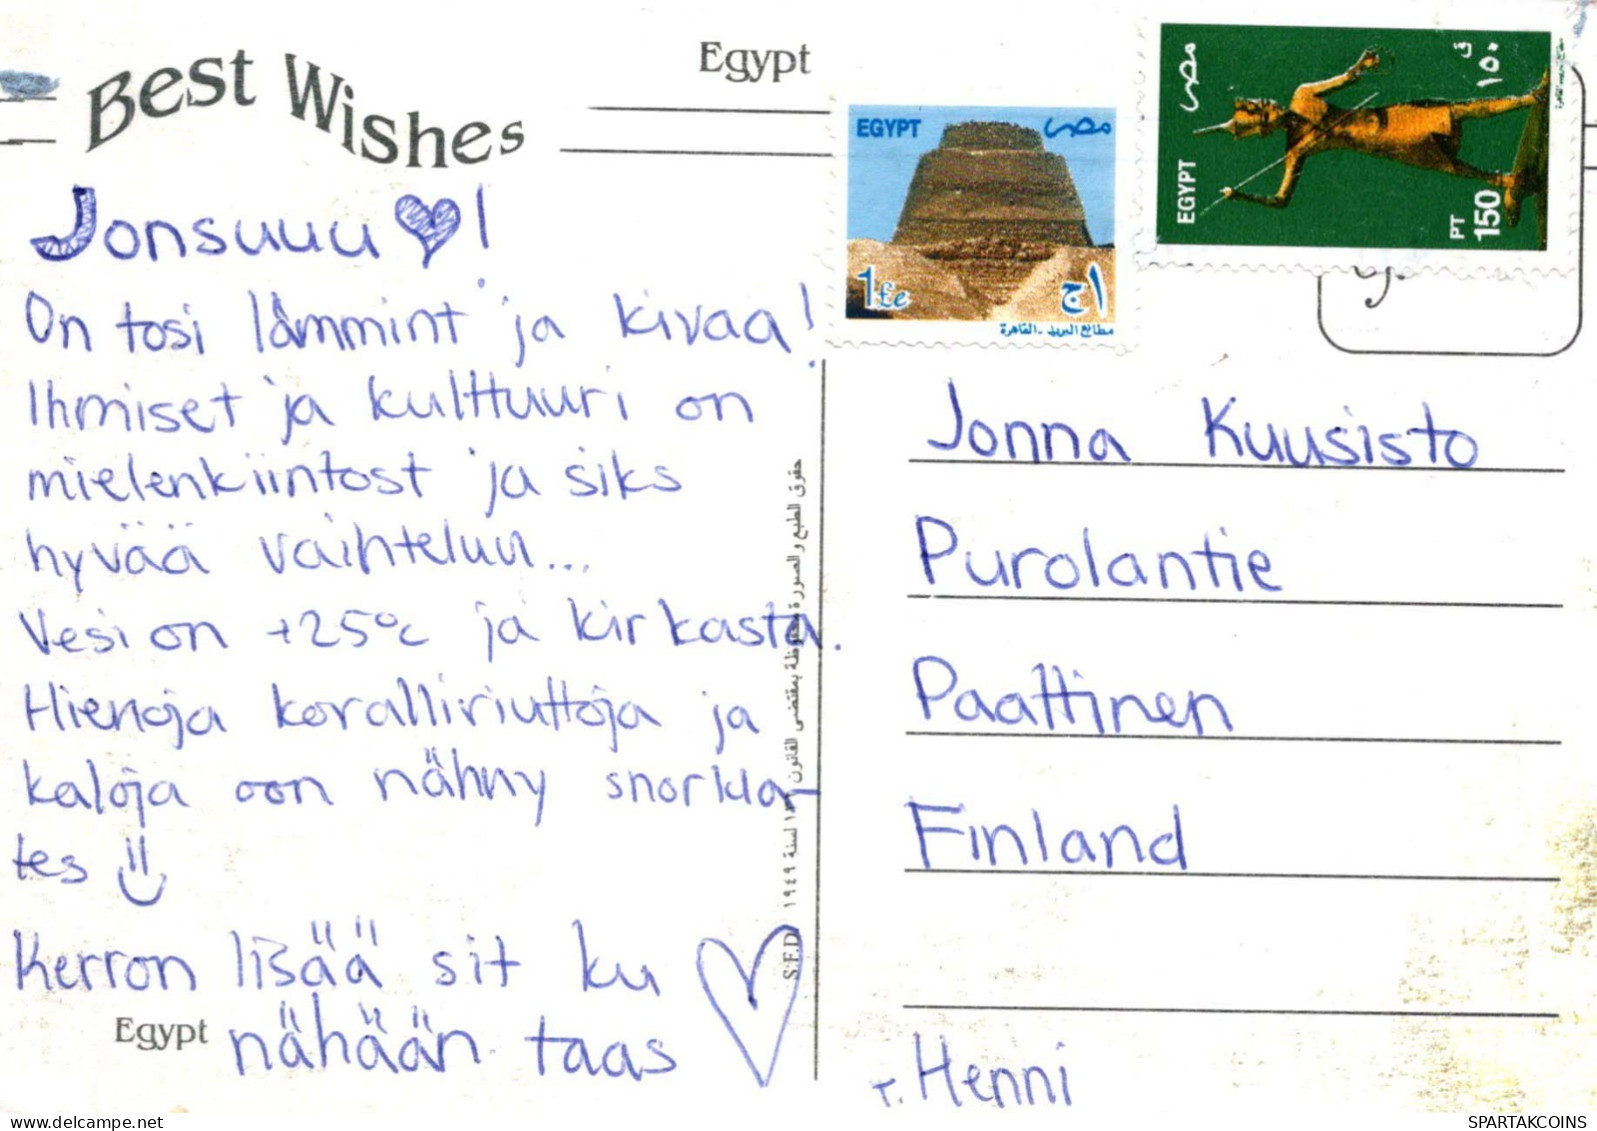 Best Wishes
Egypt
EGYPT مصر
1£e ١ج
مطابع البريد - القاهرة
مصر
١٥٠ ق
EGYPT
PT
150
Jonsuuu ♥!
On tosi lämmint ja kivaa!
Ihmiset ja kulttuuri on
mielenkiintost ja siks
hyvää vaihteluu...
Vesi on +25°C ja kirkasta.
Hienoja koralliriuttoja ja
kaloja oon nähny snorkla-
tes
Kerron lisää sit ku
nähään taas
Egypt
حقوق الطبع والصورة محفوظة بمقتضى القانون لسنة ١٩٤٩
S.F.D.
Jonna Kuusisto
Purolantie
Paattinen
Finland
T. Henni
SPARTAKCOINS